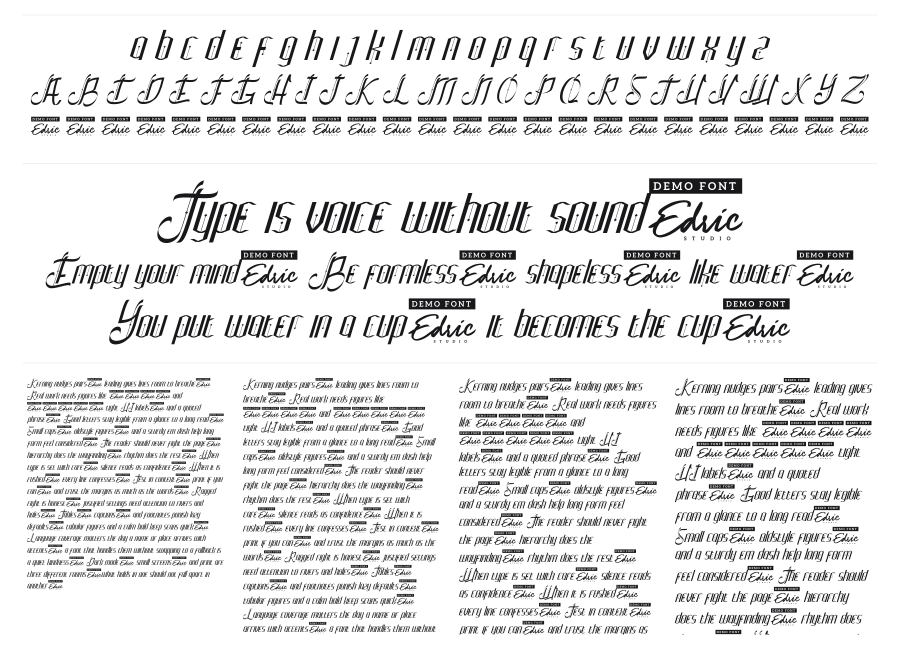 a b c d e f g h i j k l m n o p q r s t u v w x y z
A B C D E F G H I J K L M N O P Q R S T U V W X Y Z
DEMO FONT DEMO FONT DEMO FONT DEMO FONT DEMO FONT DEMO FONT DEMO FONT DEMO FONT DEMO FONT DEMO FONT DEMO FONT DEMO FONT DEMO FONT DEMO FONT DEMO FONT DEMO FONT DEMO FONT DEMO FONT DEMO FONT DEMO FONT DEMO FONT DEMO FONT DEMO FONT DEMO FONT
Edric Edric Edric Edric Edric Edric Edric Edric Edric Edric Edric Edric Edric Edric Edric Edric Edric Edric Edric Edric Edric Edric Edric Edric
Type is voice without sound DEMO FONT Edric STUDIO
Empty your mind DEMO FONT Edric STUDIO Be formless DEMO FONT Edric STUDIO shapeless DEMO FONT Edric STUDIO like water DEMO FONT Edric STUDIO
You put water in a cup DEMO FONT Edric STUDIO it becomes the cup DEMO FONT Edric STUDIO
Kerning nudges pairs Edric leading gives lines room to breathe Edric
Real work needs figures like Edric Edric Edric Edric Edric and
Edric Edric Edric Edric Edric Edric light UI labels Edric and a quoted
phrase Edric Good letters stay legible from a glance to a long read Edric
Small caps Edric oldstyle figures Edric and a sturdy em dash help long
form feel considered Edric The reader should never fight the page Edric
hierarchy does the wayfinding Edric rhythm does the rest Edric When
type is set with care Edric silence reads as confidence Edric When it is
rushed Edric every line confesses Edric Test in context Edric print if you
can Edric and trust the margins as much as the words Edric Ragged
right is honest Edric justified settings need attention to rivers and
holes Edric Tables Edric captions Edric and footnotes punish key
defaults Edric tabular figures and a calm bold keep scans quick Edric
Language coverage matters the day a name or place arrives with
accents Edric a font that handles them without swapping to a fallback is
a quiet kindness Edric Dark mode Edric small screens Edric and print are
three different rooms Edric what holds in one should not fall apart in
another Edric
Kerning nudges pairs Edric leading gives lines room to
breathe Edric Real work needs figures like
Edric Edric Edric Edric Edric and Edric Edric Edric Edric Edric Edric
light UI labels Edric and a quoted phrase Edric Good
letters stay legible from a glance to a long read Edric Small
caps Edric oldstyle figures Edric and a sturdy em dash help
long form feel considered Edric The reader should never
fight the page Edric hierarchy does the wayfinding Edric
rhythm does the rest Edric When type is set with
care Edric silence reads as confidence Edric When it is
rushed Edric every line confesses Edric Test in context Edric
print if you can Edric and trust the margins as much as the
words Edric Ragged right is honest Edric justified settings
need attention to rivers and holes Edric Tables Edric
captions Edric and footnotes punish key defaults Edric
tabular figures and a calm bold keep scans quick Edric
Language coverage matters the day a name or place
arrives with accents Edric a font that handles them without
Kerning nudges pairs Edric leading gives lines
room to breathe Edric Real work needs figures
like Edric Edric Edric Edric Edric and
Edric Edric Edric Edric Edric Edric light UI
labels Edric and a quoted phrase Edric Good
letters stay legible from a glance to a long
read Edric Small caps Edric oldstyle figures Edric
and a sturdy em dash help long form feel
considered Edric The reader should never fight
the page Edric hierarchy does the
wayfinding Edric rhythm does the rest Edric
When type is set with care Edric silence reads
as confidence Edric When it is rushed Edric
every line confesses Edric Test in context Edric
print if you can Edric and trust the margins as
Kerning nudges pairs Edric leading gives
lines room to breathe Edric Real work
needs figures like Edric Edric Edric Edric Edric
and Edric Edric Edric Edric Edric Edric light
UI labels Edric and a quoted
phrase Edric Good letters stay legible
from a glance to a long read Edric
Small caps Edric oldstyle figures Edric
and a sturdy em dash help long form
feel considered Edric The reader should
never fight the page Edric hierarchy
does the wayfinding Edric rhythm does